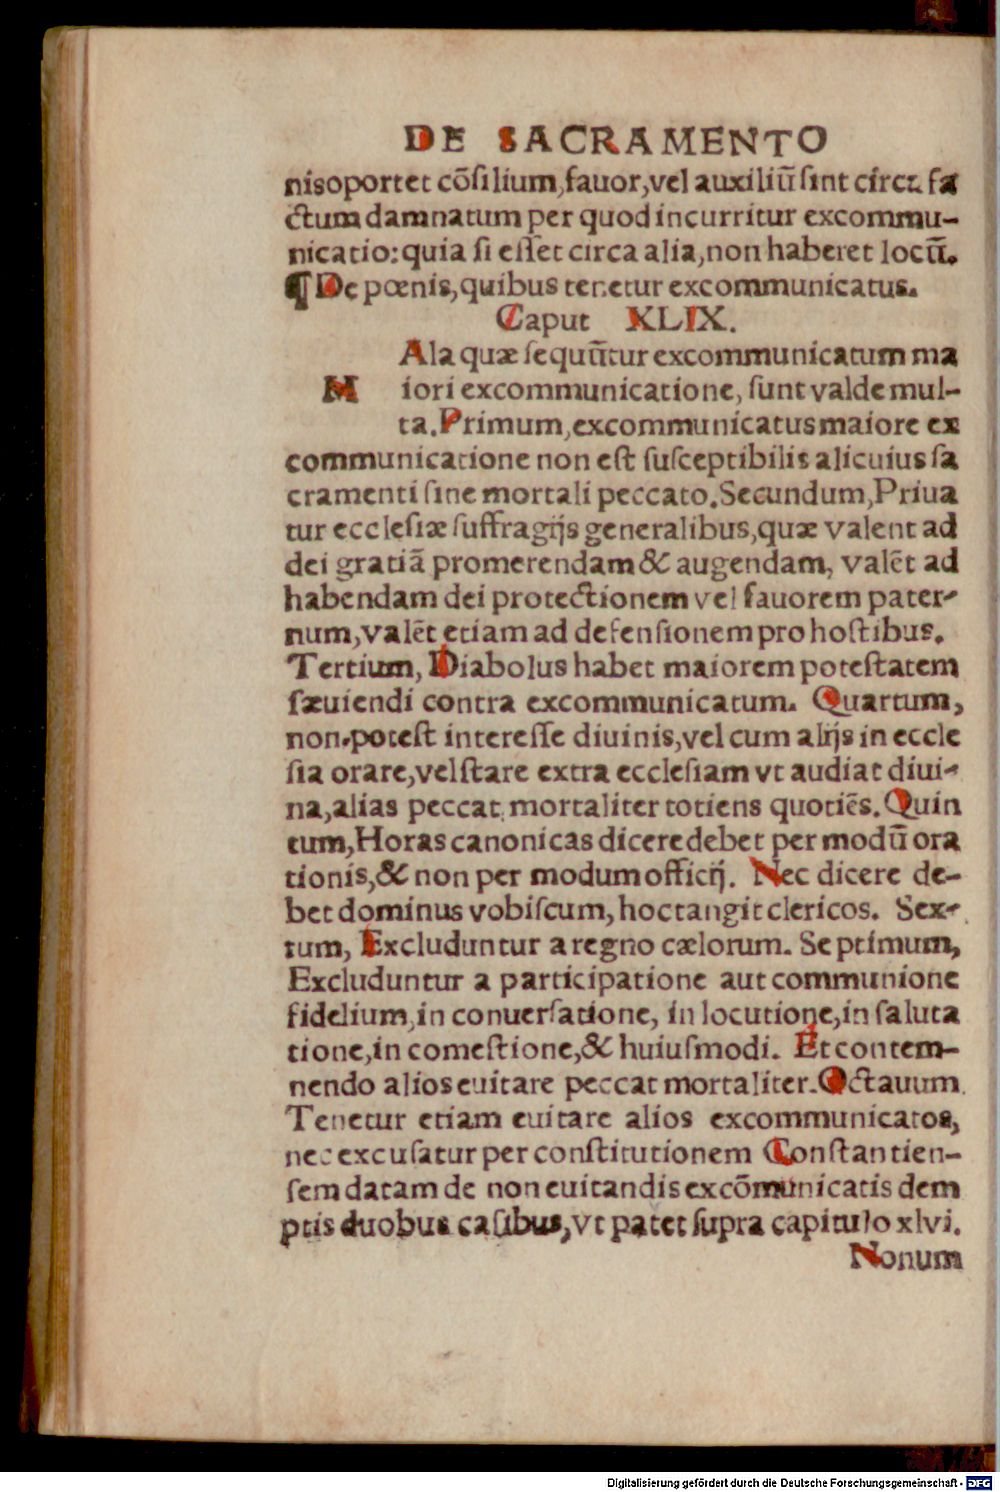 DE SACRAMENTO
nisoportet cōſilium, fauor, vel auxiliū ſint circa fa
ctum damnatum per quod incurritur excommu-
nicatio: quia ſi eſſet circa alia, non haberet locū.
¶ De pœnis, quibus tenetur excommunicatus.
Caput XLIX.
MAla quæ ſequūtur excommunicatum ma
iori excommunicatione, ſunt valde mul-
ta. Primum, excommunicatus maiore ex
communicatione non eſt ſuſceptibilis alicuius ſa
cramenti ſine mortali peccato. Secundum, Priua
tur eccleſiæ ſuffragijs generalibus, quæ valent ad
dei gratiā promerendam & augendam, valēt ad
habendam dei protectionem vel fauorem pater-
num, valēt etiam ad defenſionem pro hoſtibus.
Tertium, Diabolus habet maiorem poteſtatem
ſæuiendi contra excommunicatum. Quartum,
non poteſt intereſſe diuinis, vel cum alijs in eccle
ſia orare, vel ſtare extra eccleſiam vt audiat diui-
na, alias peccat mortaliter totiens quotiēs. Quin
tum, Horas canonicas dicere debet per modū ora
tionis, & non per modum officij. Nec dicere de-
bet dominus vobiſcum, hoc tangit clericos. Sex-
tum, Excluduntur a regno cælorum. Septimum,
Excluduntur a participatione aut communione
fidelium, in conuerſatione, in locutione, in ſaluta
tione, in comeſtione, & huiuſmodi. Et contem-
nendo alios euitare peccat mortaliter. Octauum
Tenetur etiam euitare alios excommunicatos,
nec excuſatur per conſtitutionem Conſtantien-
ſem datam de non euitandis excōmunicatis dem
ptis duobus caſibus, vt patet ſupra capitulo xlvi.
Nonum
Digitalisierung gefördert durch die Deutsche Forschungsgemeinschaft - DFG